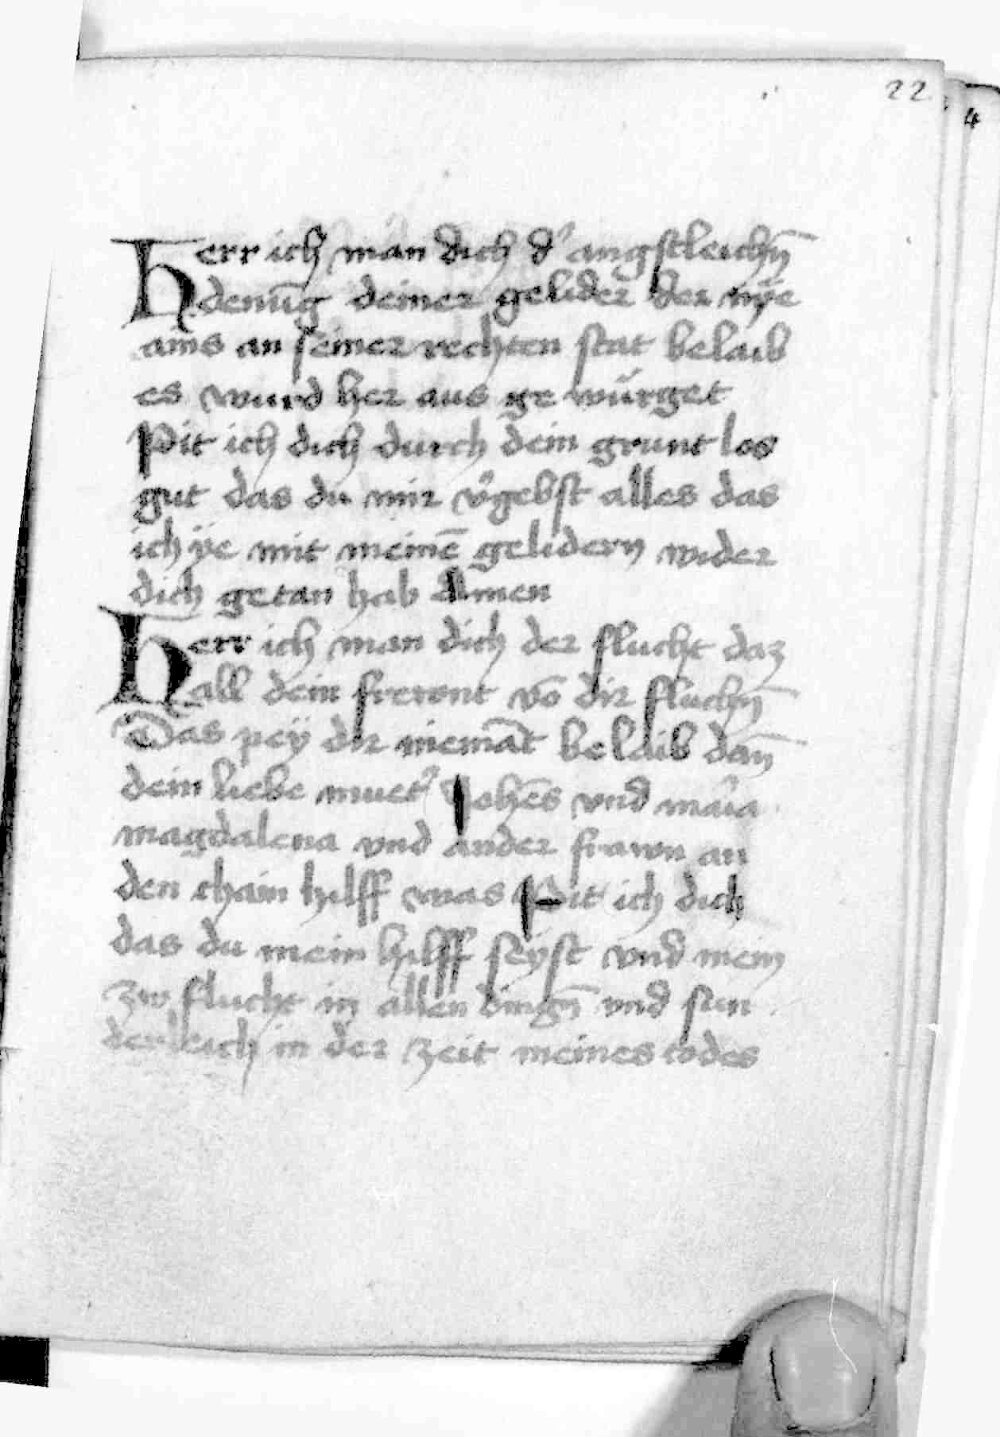 22
4
Herr ich man dich d' angstleichn̄
denūg deiner gelider der nÿe
ains an seiner rechten stat belaib
es wurd her aus ge würget
Pit ich dich durch dein grunt los
gut das du mir v'gebst alles das
ich ÿe mit meinē gelidern wider
dich getan hab Amen
Herr ich man dich der flucht daz
all dein frewnt vō dir fluchn̄
Das pey dir niemāt belaib dan̄
dein liebe muet' Johēs vnd maria
magdalena vnd ander frawn an
den chain hilff was Pit ich dich
das du mein hilff seÿst vnd mein
zw flucht in allen dingn̄ vnd sun
derleich in der zeit meines todes